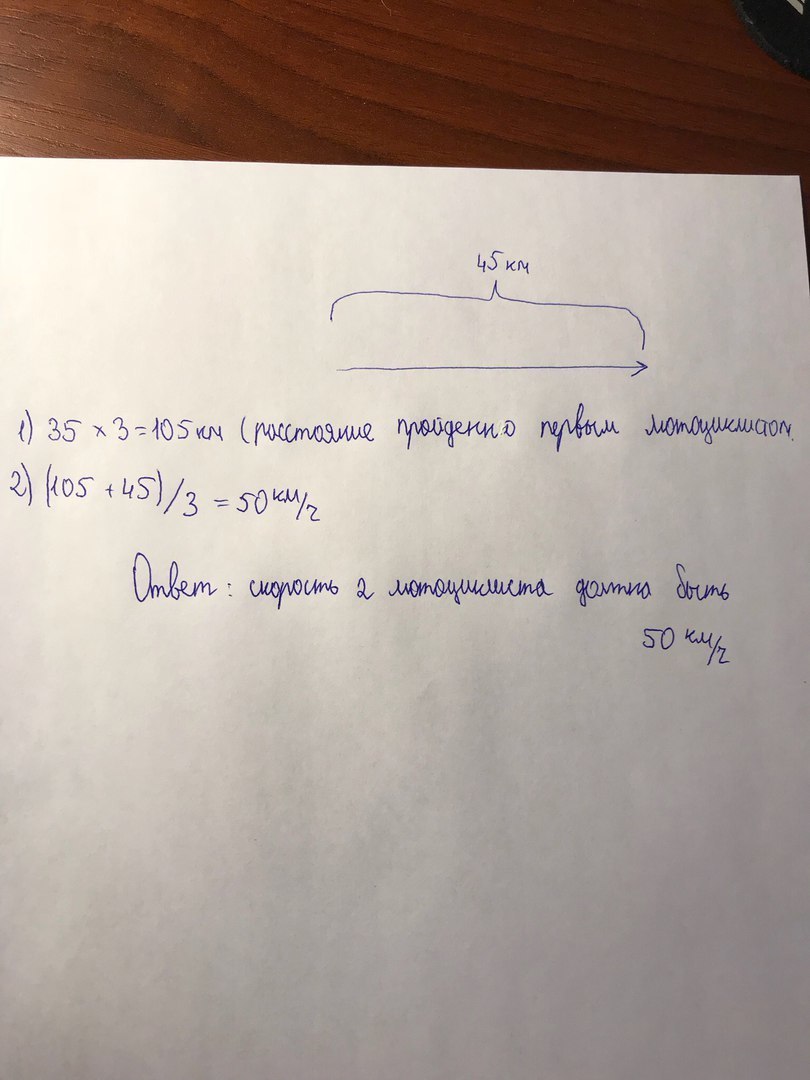 45 км
1) 35 × 3 = 105 км (расстояние пройденно первым мотоциклистом.
2) (105 + 45) / 3 = 50 км/ч
Ответ: скорость 2 мотоциклиста должна быть
50 км/ч